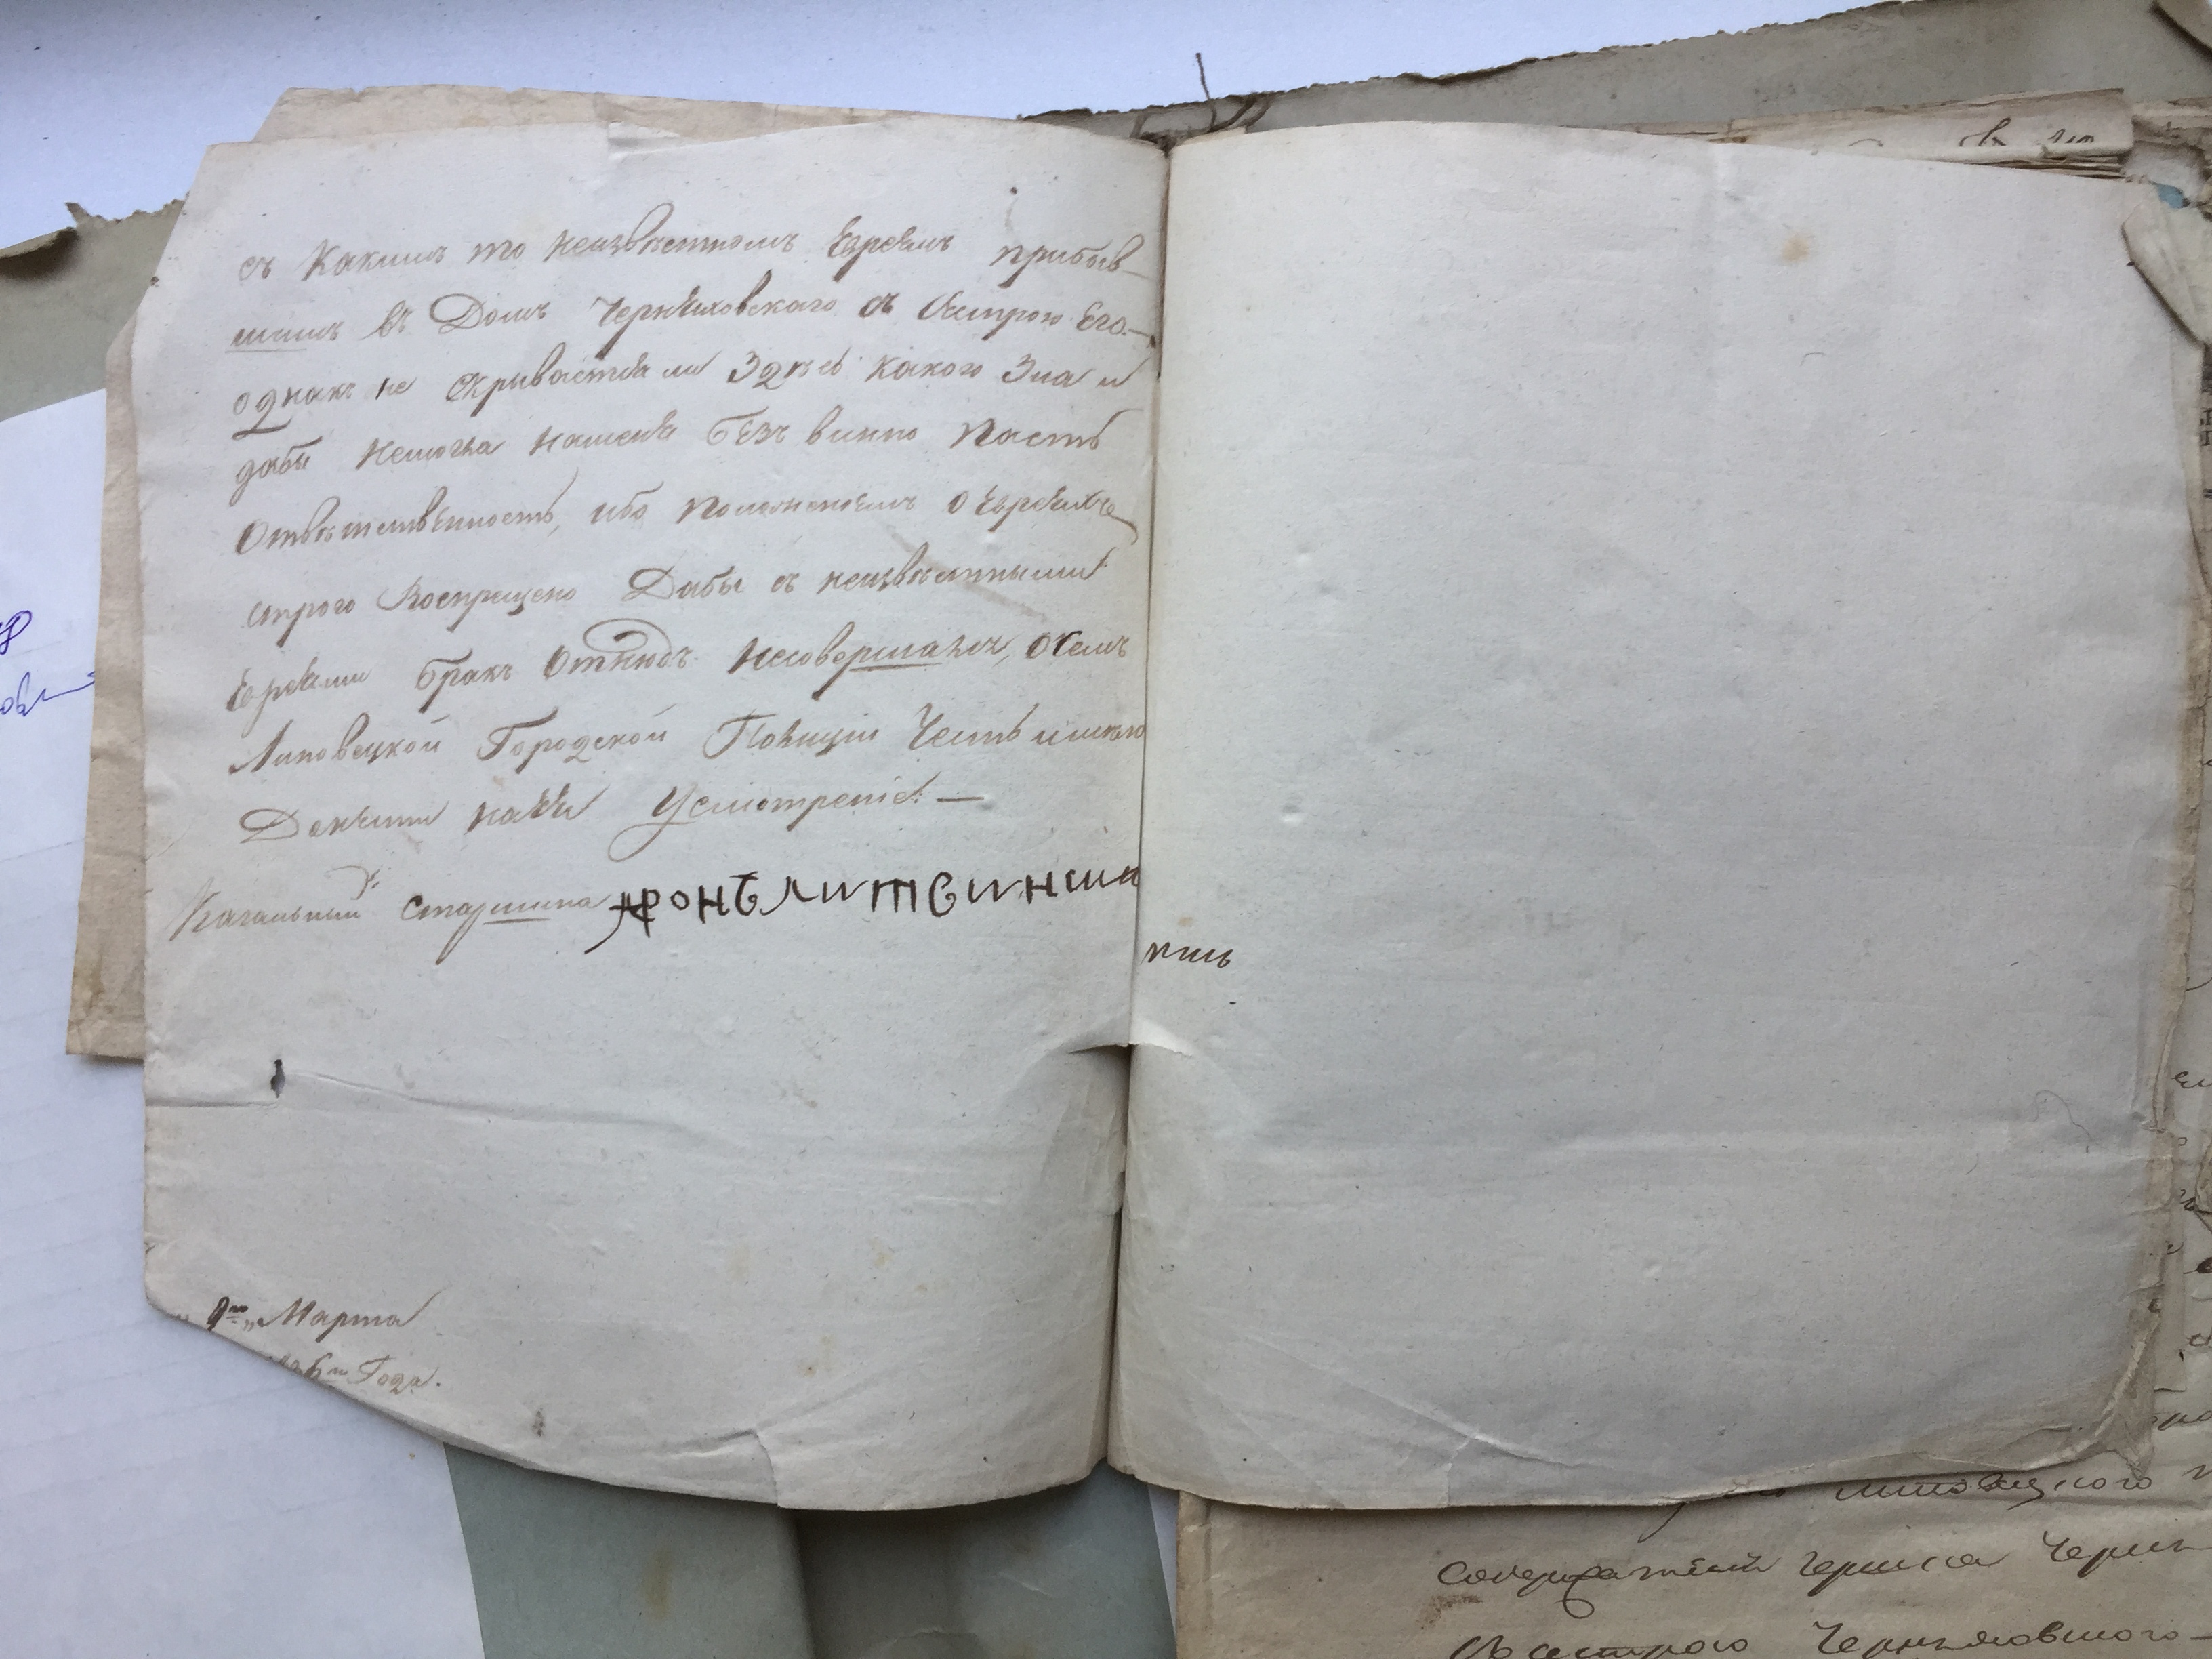 съ Какимъ то неизвѣстномъ Евреемъ прибыв-
шимъ въ Домъ Черняховскаго съ Сестрою Его.—
однакъ не скрывается ли Здѣсь какого Зла и
дабы немогла нашеня безъ винно пасть
Отвѣтственность, ибо положенiемъ о Евреяхъ
строго Воспрещено Дабы съ неизвѣстными
Евреями бракъ Отнюдъ несовершать, очемъ
Липовецкой Городской Полицiи Честь имѣю
Донести на Ея Усмотренiе. —
Кагальный Старшина Аронъ Литвинши
пшь
9го Марта
6го Года.
в
липовецкого
содержателя Гершка Черн
Сестрою Черняховского